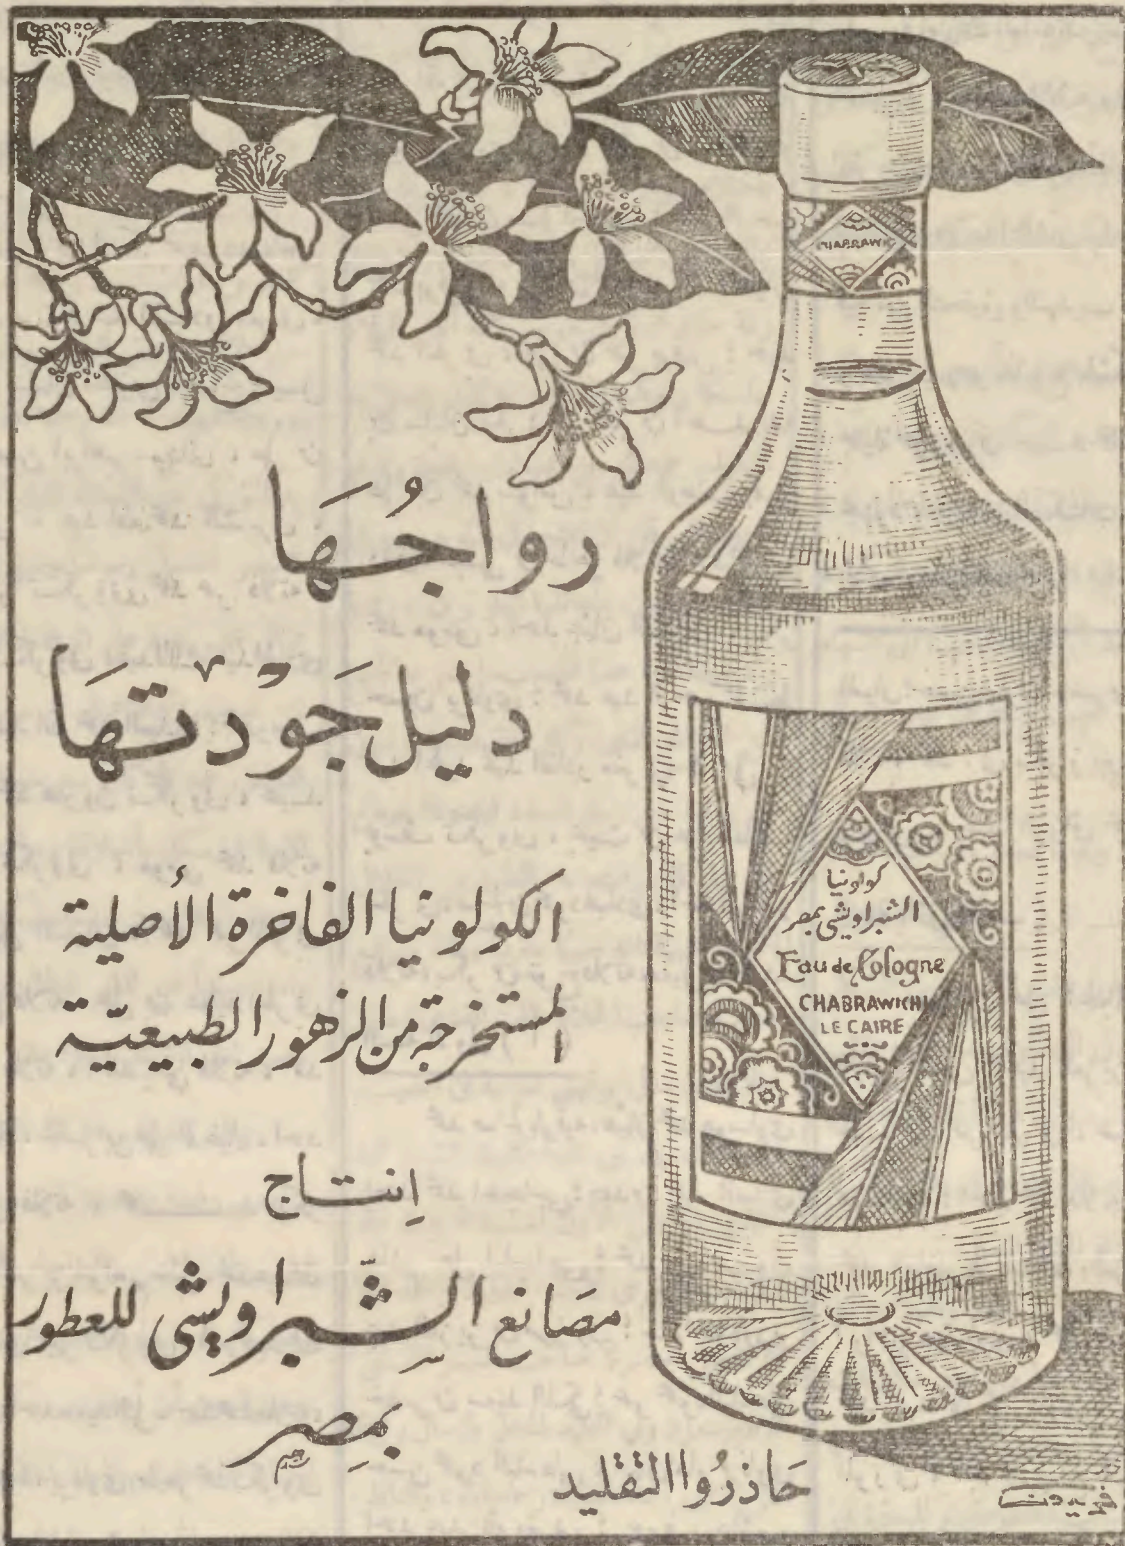 رواجُهَا
دليل جَوْدتهَا
الكولونيا الفاخرة الأصلية
المستخرجة من الزهور الطبيعيّة
إنتاج
مصَانع الشِّبراويشى للعطور
بمصِر
حَاذرُوا التقليد
فريدون
CHABRAWIC
كولونيا
الشبراويشى بمصر
Eau de Cologne
CHABRAWICHI
LE CAIRE